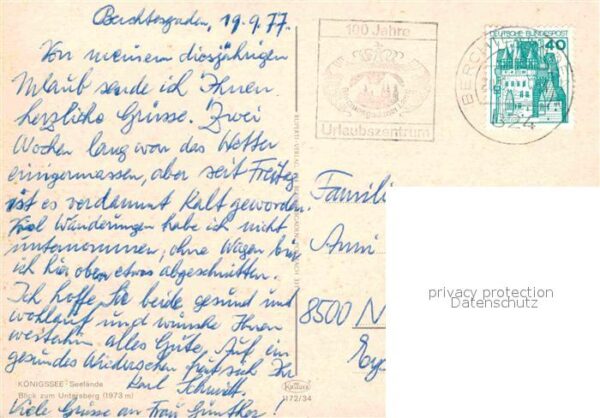 Berchtesgaden, 19.9.77
Von meinem diesjährigen
Urlaub sende ich Ihnen
herzliche Grüsse. Zwei
Wochen lang war das Wetter
einigermassen, aber seit Freitag
ist es verdammt kalt geworden.
Viel Wanderungen habe ich nicht
unternommen, ohne Wagen bin
ich hier oben etwas abgeschnitten.
Ich hoffe, Sie beide gesund und
wohlauf und wünsche Ihnen
weiterhin alles Gute. Auf ein
gesundes Wiedersehen freut sich Ihr
Karl Schmidt.
Viele Grüsse an Frau Günther!
KÖNIGSSEE Seelände
Blick zum Untersberg (1973 m)
100 Jahre
Berchtesgadener Land
Urlaubszentrum
DEUTSCHE BUNDESPOST
40
BERCH
824
Famili
Anni
8500 N
privacy protection
Datenschutz
1172/34